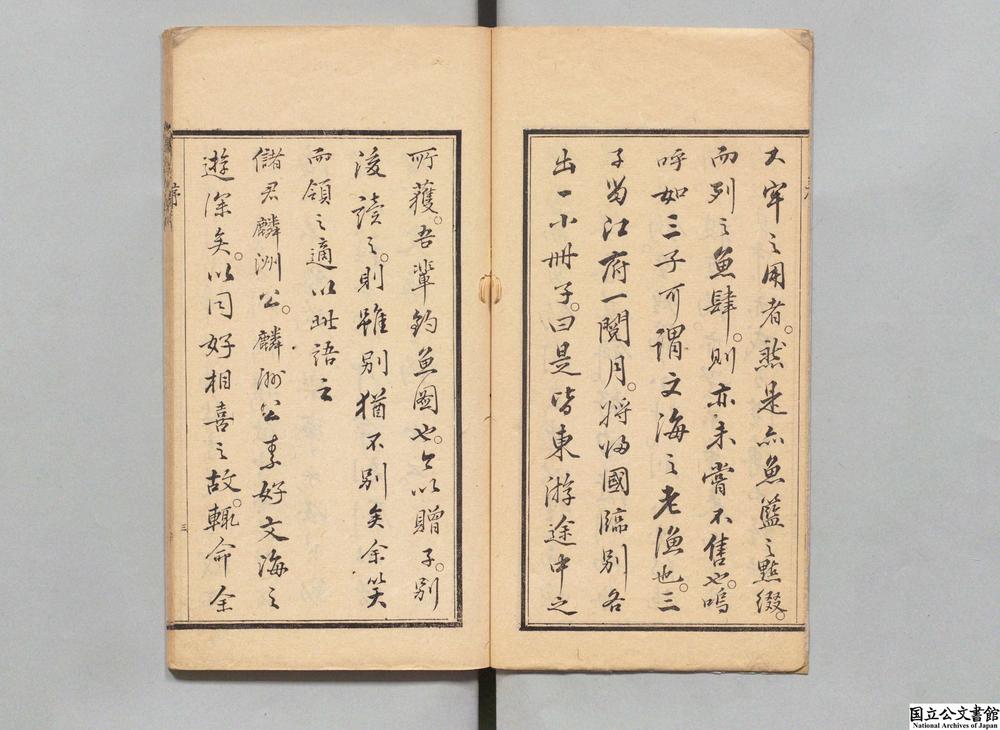 大牢之用者。然是亦魚籃之點綴。
而列之魚肆。則亦未嘗不售也。嗚
呼如三子可謂文海之老漁也。三
子留江府一閱月。將歸國臨別各
出一小冊子。曰是皆東游途中之
所獲。吾輩釣魚圖也。今以贈子。別
後讀之。則雖別猶不別矣余笑
而領之適以此語之
儲君麟洲公。麟洲公素好文海之
遊深矣。以同好相喜之故。輒命余
序
三
国立公文書館
National Archives of Japan